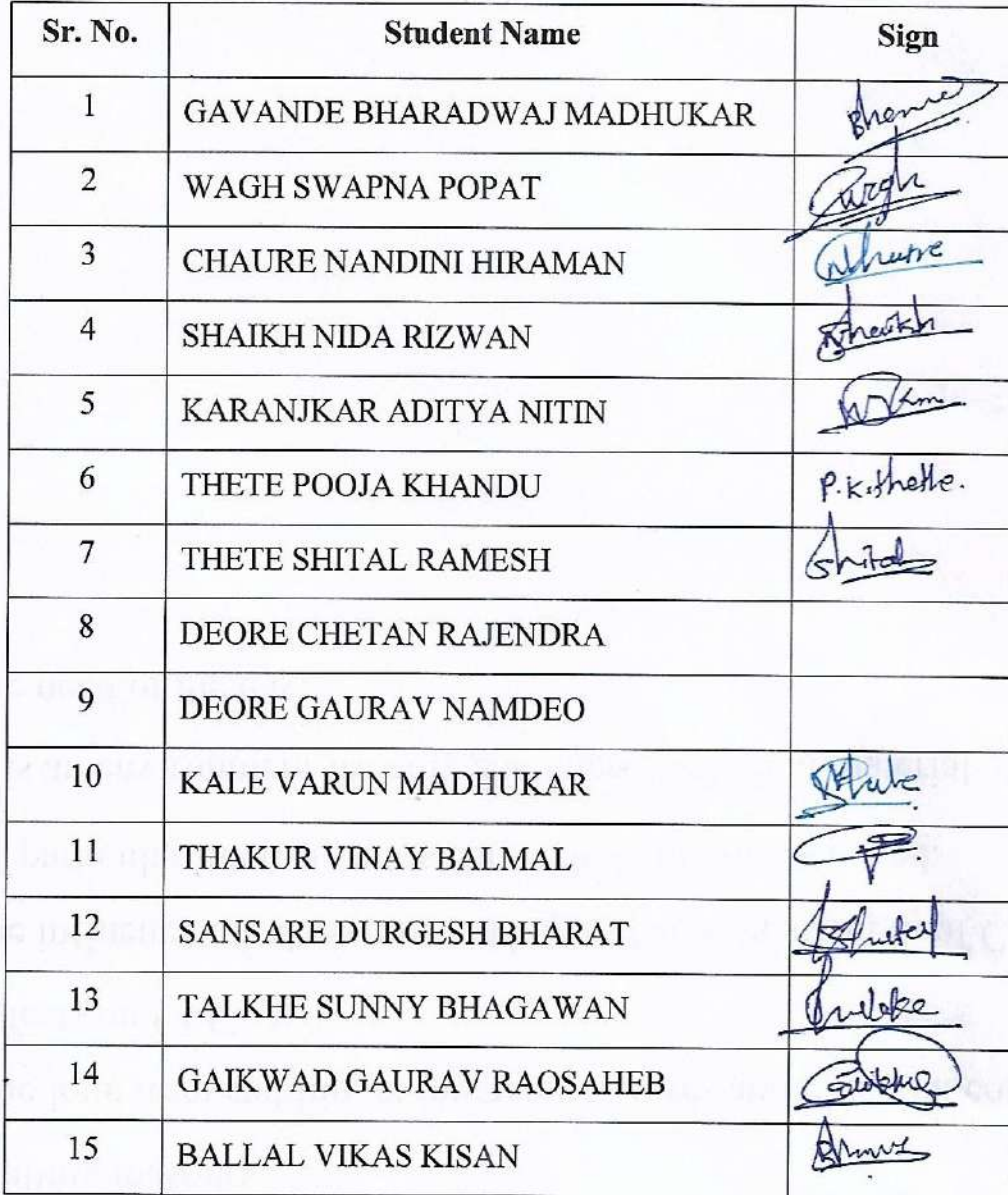 Sr. No. Student Name Sign
1 GAVANDE BHARADWAJ MADHUKAR
2 WAGH SWAPNA POPAT
3 CHAURE NANDINI HIRAMAN
4 SHAIKH NIDA RIZWAN Shaikh
5 KARANJKAR ADITYA NITIN
6 THETE POOJA KHANDU P.K.thete.
7 THETE SHITAL RAMESH Shital
8 DEORE CHETAN RAJENDRA
9 DEORE GAURAV NAMDEO
10 KALE VARUN MADHUKAR
11 THAKUR VINAY BALMAL
12 SANSARE DURGESH BHARAT
13 TALKHE SUNNY BHAGAWAN
14 GAIKWAD GAURAV RAOSAHEB
15 BALLAL VIKAS KISAN